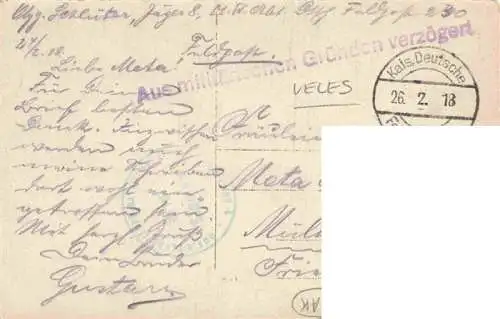 Abg. Schlüter, Jäger 8, Dtsch. Feldpost 230
Feldpost.
Aus militärischen Gründen verzögert
VELES
Kais. Deutsche
26. 2. 18
Liebe Meta!
Für Deinen
Brief besten
Dank. Inzwischen
werden auch
meine Schreiben
dort wohl ein-
getroffen sein.
Mit herzl. Gruß
Dein Bruder
Gustav
Fräulein
Meta